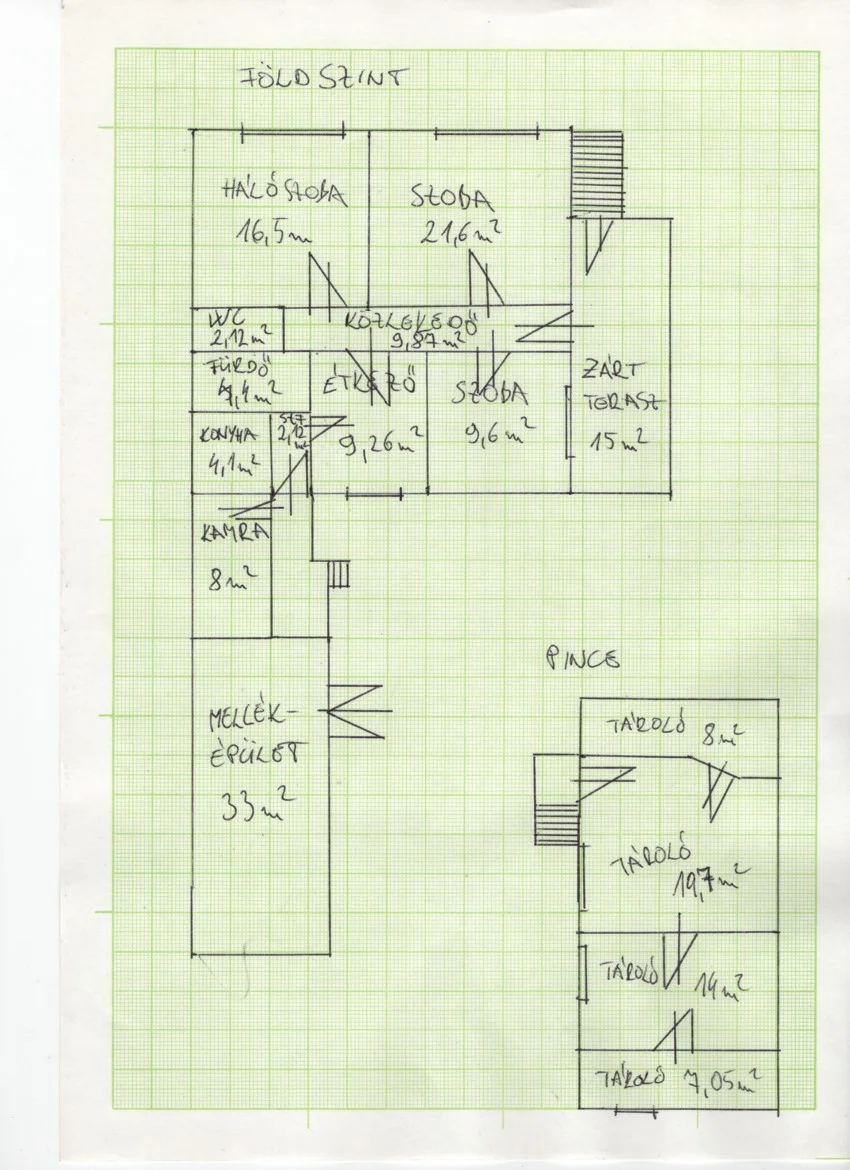 FÖLDSZINT
HÁLÓSZOBA
16,5m
SZOBA
21,6m²
WC
2,12m²
KÖZLEKEDŐ
9,87m²
FÜRDŐ
4,4m²
ÉTKEZŐ
9,26m²
SZOBA
9,6m²
ZÁRT
TERASZ
15m²
KONYHA
4,1m²
2,12
m²
KAMRA
8m²
MELLÉK-
ÉPÜLET
33m²
PINCE
TÁROLÓ 8m²
TÁROLÓ
19,7m²
TÁROLÓ 14m²
TÁROLÓ 7,05m²